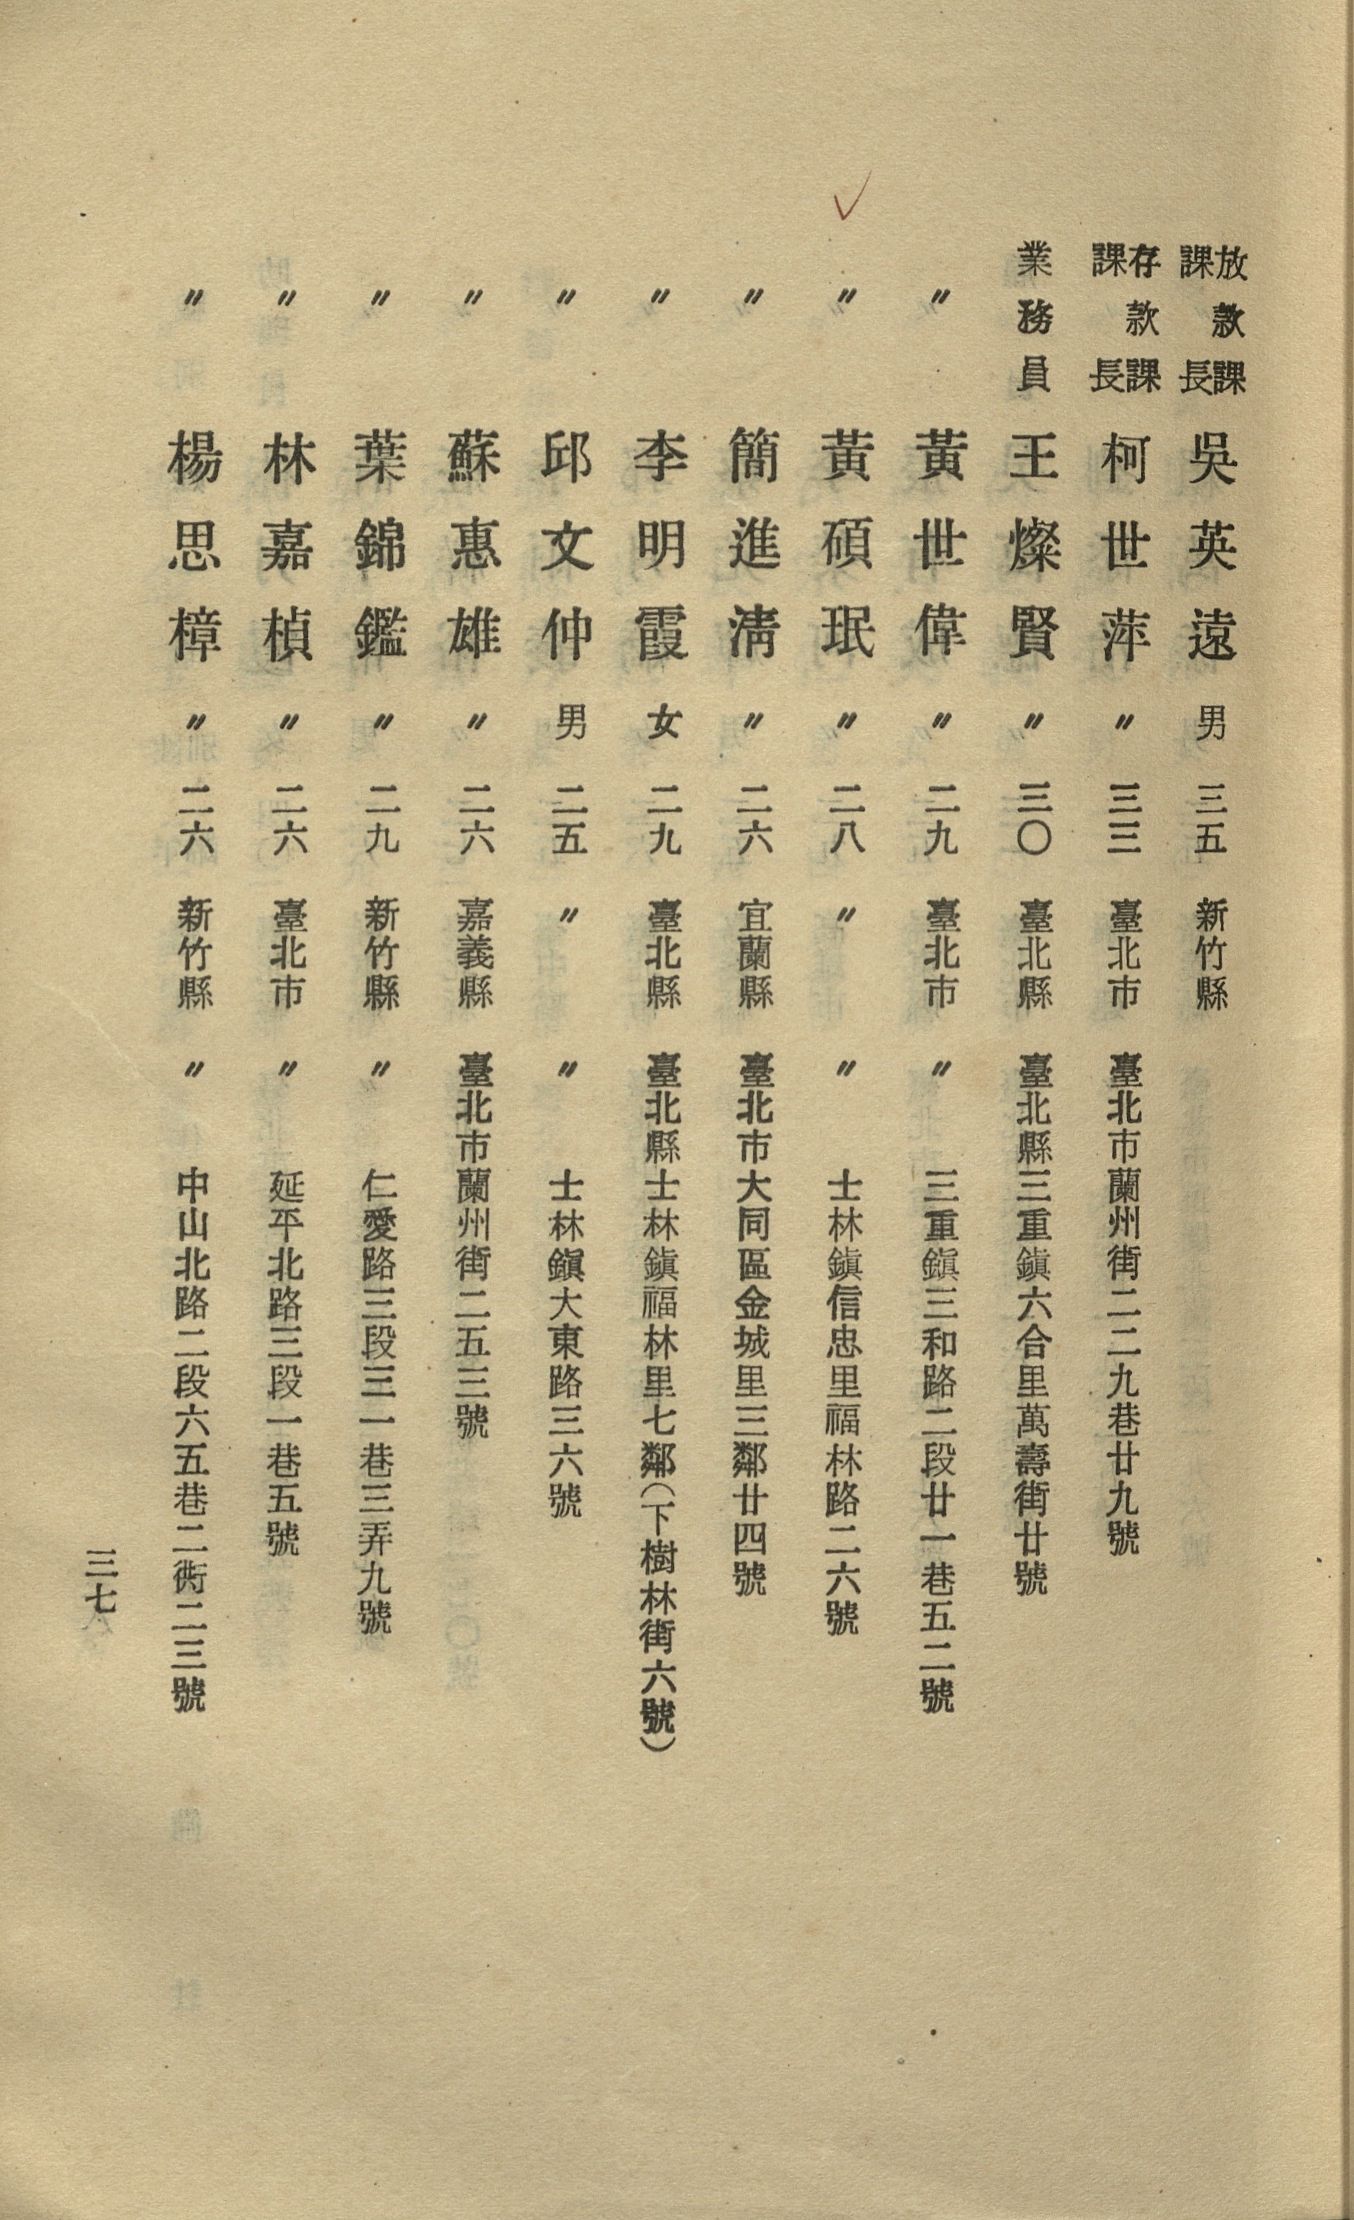 放款課課長 吳英遠 男 三五 新竹縣
存款課課長 柯世萍 〃 三三 臺北市 臺北市蘭州街二二九巷廿九號
業務員 王燦賢 〃 三〇 臺北縣 臺北縣三重鎮六合里萬壽街廿號
〃 黃世偉 〃 二九 臺北市 〃 三重鎮三和路二段廿一巷五二號
〃 黃碩珉 〃 二八 〃 〃 士林鎮信忠里福林路二六號
〃 簡進淸 〃 二六 宜蘭縣 臺北市大同區金城里三鄰廿四號
〃 李明霞 女 二九 臺北縣 臺北縣士林鎮福林里七鄰（下樹林街六號）
〃 邱文仲 男 二五 〃 〃 士林鎮大東路三六號
〃 蘇惠雄 〃 二六 嘉義縣 臺北市蘭州街二五三號
〃 葉錦鑑 〃 二九 新竹縣 〃 仁愛路三段三一巷三弄九號
〃 林嘉楨 〃 二六 臺北市 〃 延平北路三段一巷五號
〃 楊思樟 〃 二六 新竹縣 〃 中山北路二段六五巷二衖二三號
三七